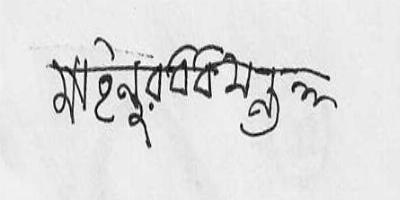 মাইনুর বিবি মন্ডল